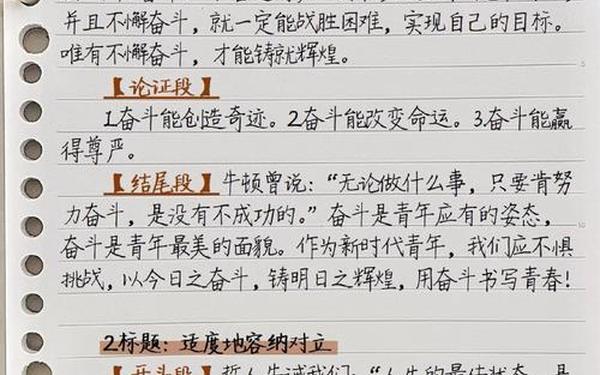 并且不懈奋斗，就一定能战胜困难，实现自己的目标。
唯有不懈奋斗，才能铸就辉煌。
【论证段】
1.奋斗能创造奇迹。2.奋斗能改变命运。3.奋斗能赢
得尊严。
【结尾段】牛顿曾说：“无论做什么事，只要肯努
力奋斗，是没有不成功的。”奋斗是青年应有的姿态，
奋斗是青年最美的面貌。作为新时代青年，我们应不惧
挑战，以今日之奋斗，铸明日之辉煌，用奋斗书写青春！
2.标题：适度地容纳对立
【开头段】哲人告诫我们：“人生的最佳状态，是